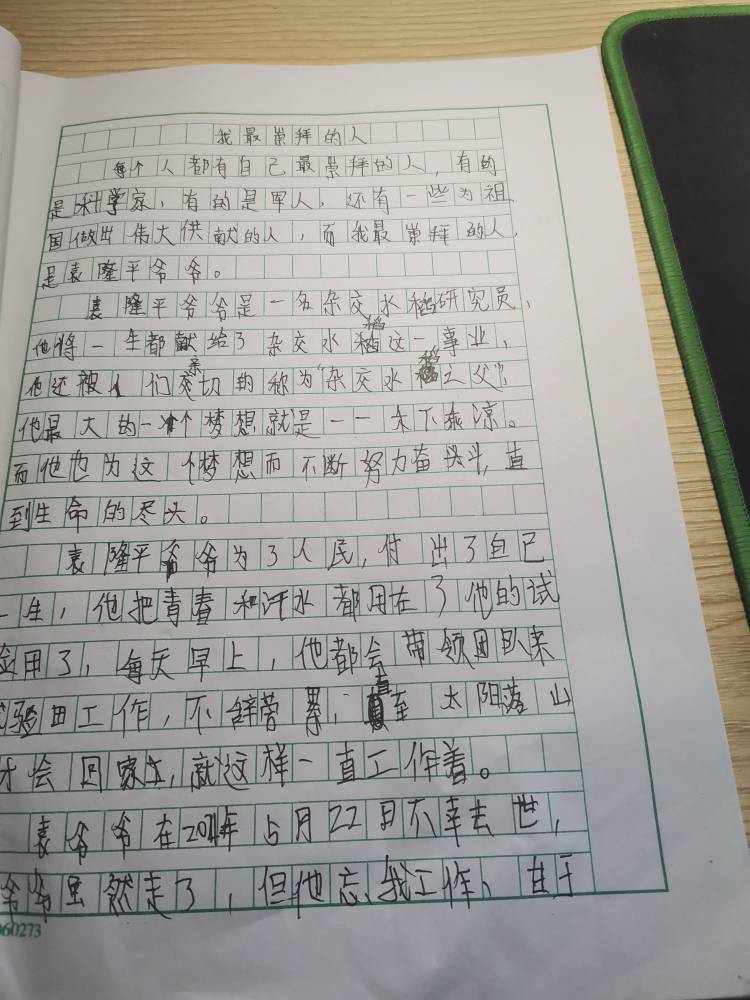 我最崇拜的人
每个人都有自己最崇拜的人，有的
是科学家，有的是军人，还有一些为祖
国做出伟大供献的人，而我最崇拜的人，
是袁隆平爷爷。
袁隆平爷爷是一名杂交水稻研究员，
他将一生都献给了杂交水稻这一事业，
他还被人们亲切的称为“杂交水稻之父”，
他最大的一个梦想就是——禾下乘凉。
而他也为这个梦想而不断努力奋斗，直
到生命的尽头。
袁隆平爷爷为了人民，付出了自己
一生，他把青春和汗水都用在了他的试
验田了，每天早上，他都会带领团队来
试验田工作，不辞劳累，直至太阳落山
才会回家，就这样一直工作着。
袁爷爷在2021年5月22日不幸去世，
爷爷虽然走了，但他忘我工作、甘于
060273